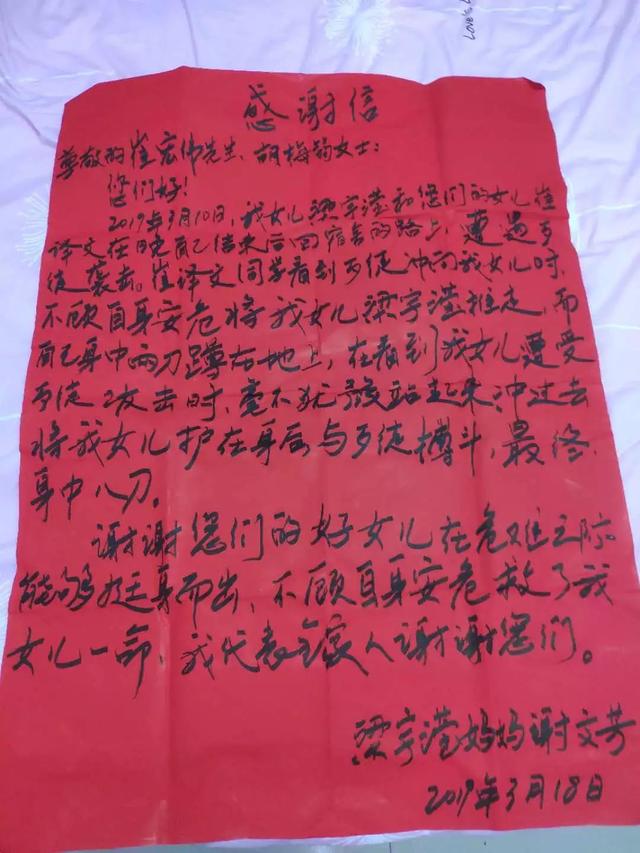 Love's L
感谢信
尊敬的崔宏伟先生、胡梅筠女士:
您们好!
2019年3月10日,我女儿梁宇滢和您们的女儿崔
译文在晚自己结束后回宿舍的路上,遭遇歹
徒袭击。崔译文同学看到歹徒冲向我女儿时,
不顾自身安危将我女儿梁宇滢推走,而
自己身中两刀蹲在地上,在看到我女儿遭受
歹徒攻击时,毫不犹豫站起来冲过去
将我女儿护在身后与歹徒搏斗,最终
身中八刀。
谢谢您们的好女儿在危难之际
能够挺身而出、不顾自身安危救了我
女儿一命,我代表全家人谢谢您们。
梁宇滢妈妈谢文芳
2019年3月18日